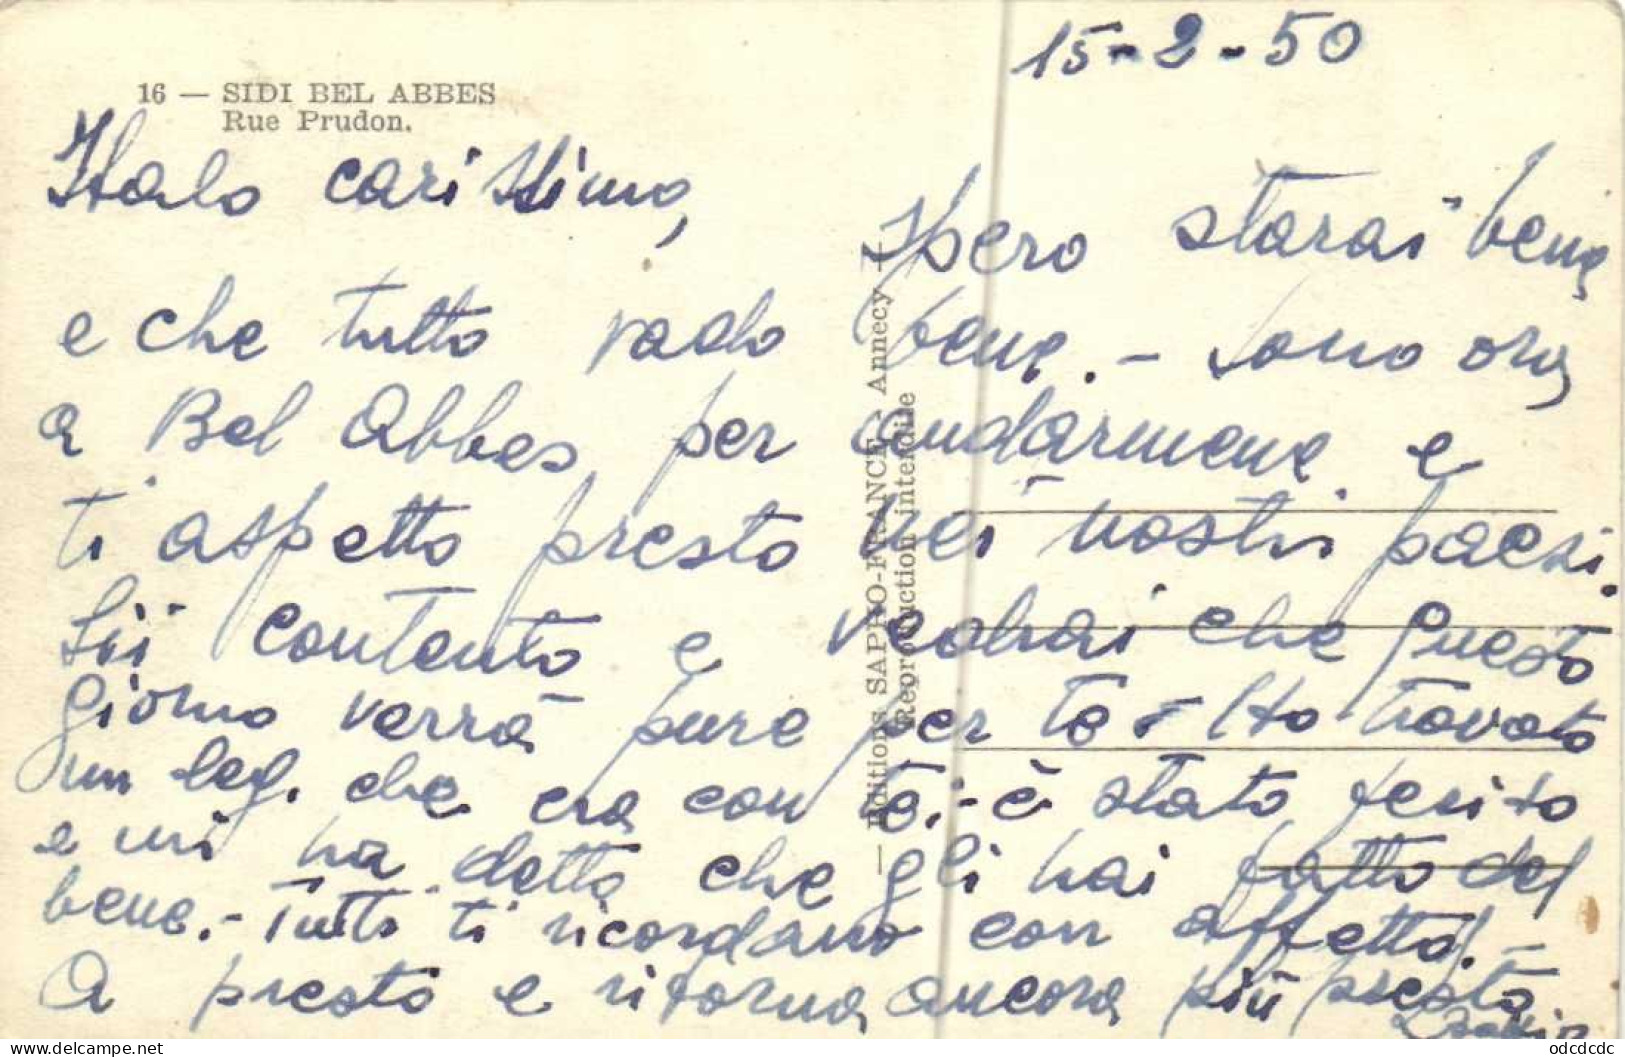 15-2-50
16 — SIDI BEL ABBES
Rue Prudon.
Italo carissimo,
spero starai bene
e che tutto vada bene. - Sono ora
a Bel Abbes per andarmene e
ti aspetto presto nei nostri paesi.
Sii contento e vedrai che questo
giorno verrà pure per te - Ho trovato
un leg. che era con te. - è stato ferito
e mi ha detto che gli hai fatto del
bene. - Tutti ti ricordano con affetto! -
A presto e ritorna ancora più presto.
— Editions SAPHO-FRANCE - Annecy —
Reproduction interdite
odcdcdc